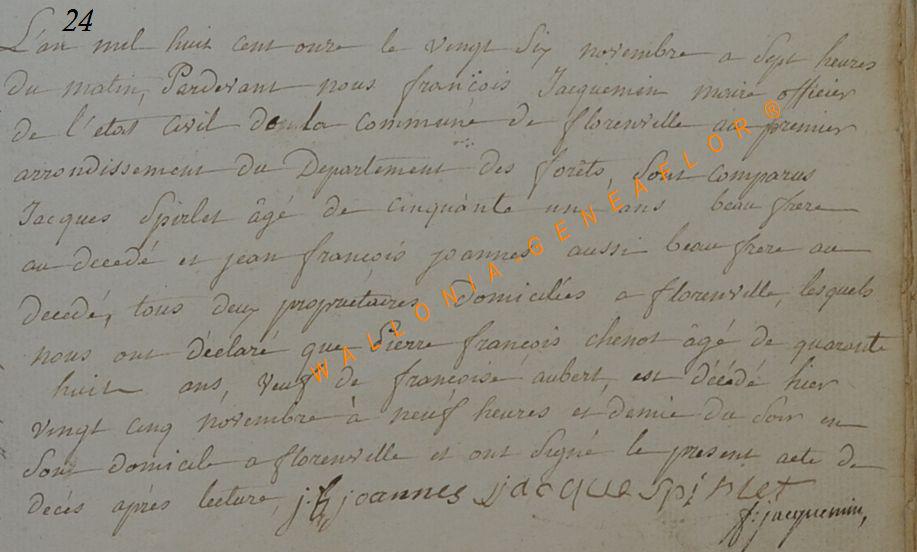 24
L'an mil huit cent onze le vingt six novembre a sept heures
du matin, Pardevant nous françois Jacquemin maire officier
de l'etat civil de la commune de florenville au premier
arrondissement du Departement des forêts, sont comparus
Jacques Spirlet âgé de cinquante un ans beau frere
au decedé et jean françois joannes aussi beau frere au
decedé, tous deux propriétaires domiciliés a florenville, lesquels
nous ont déclaré que Pierre françois chenot âgé de quarante
huit ans, veuf de françoise aubert, est décédé hier
vingt cinq novembre à neuf heures et demie du soir en
son domicile a florenville et ont signé le present acte de
decès après lecture, j f joannes jacque spirlet
f: jacquemin,
WALLONIA-GENEAFLOR®